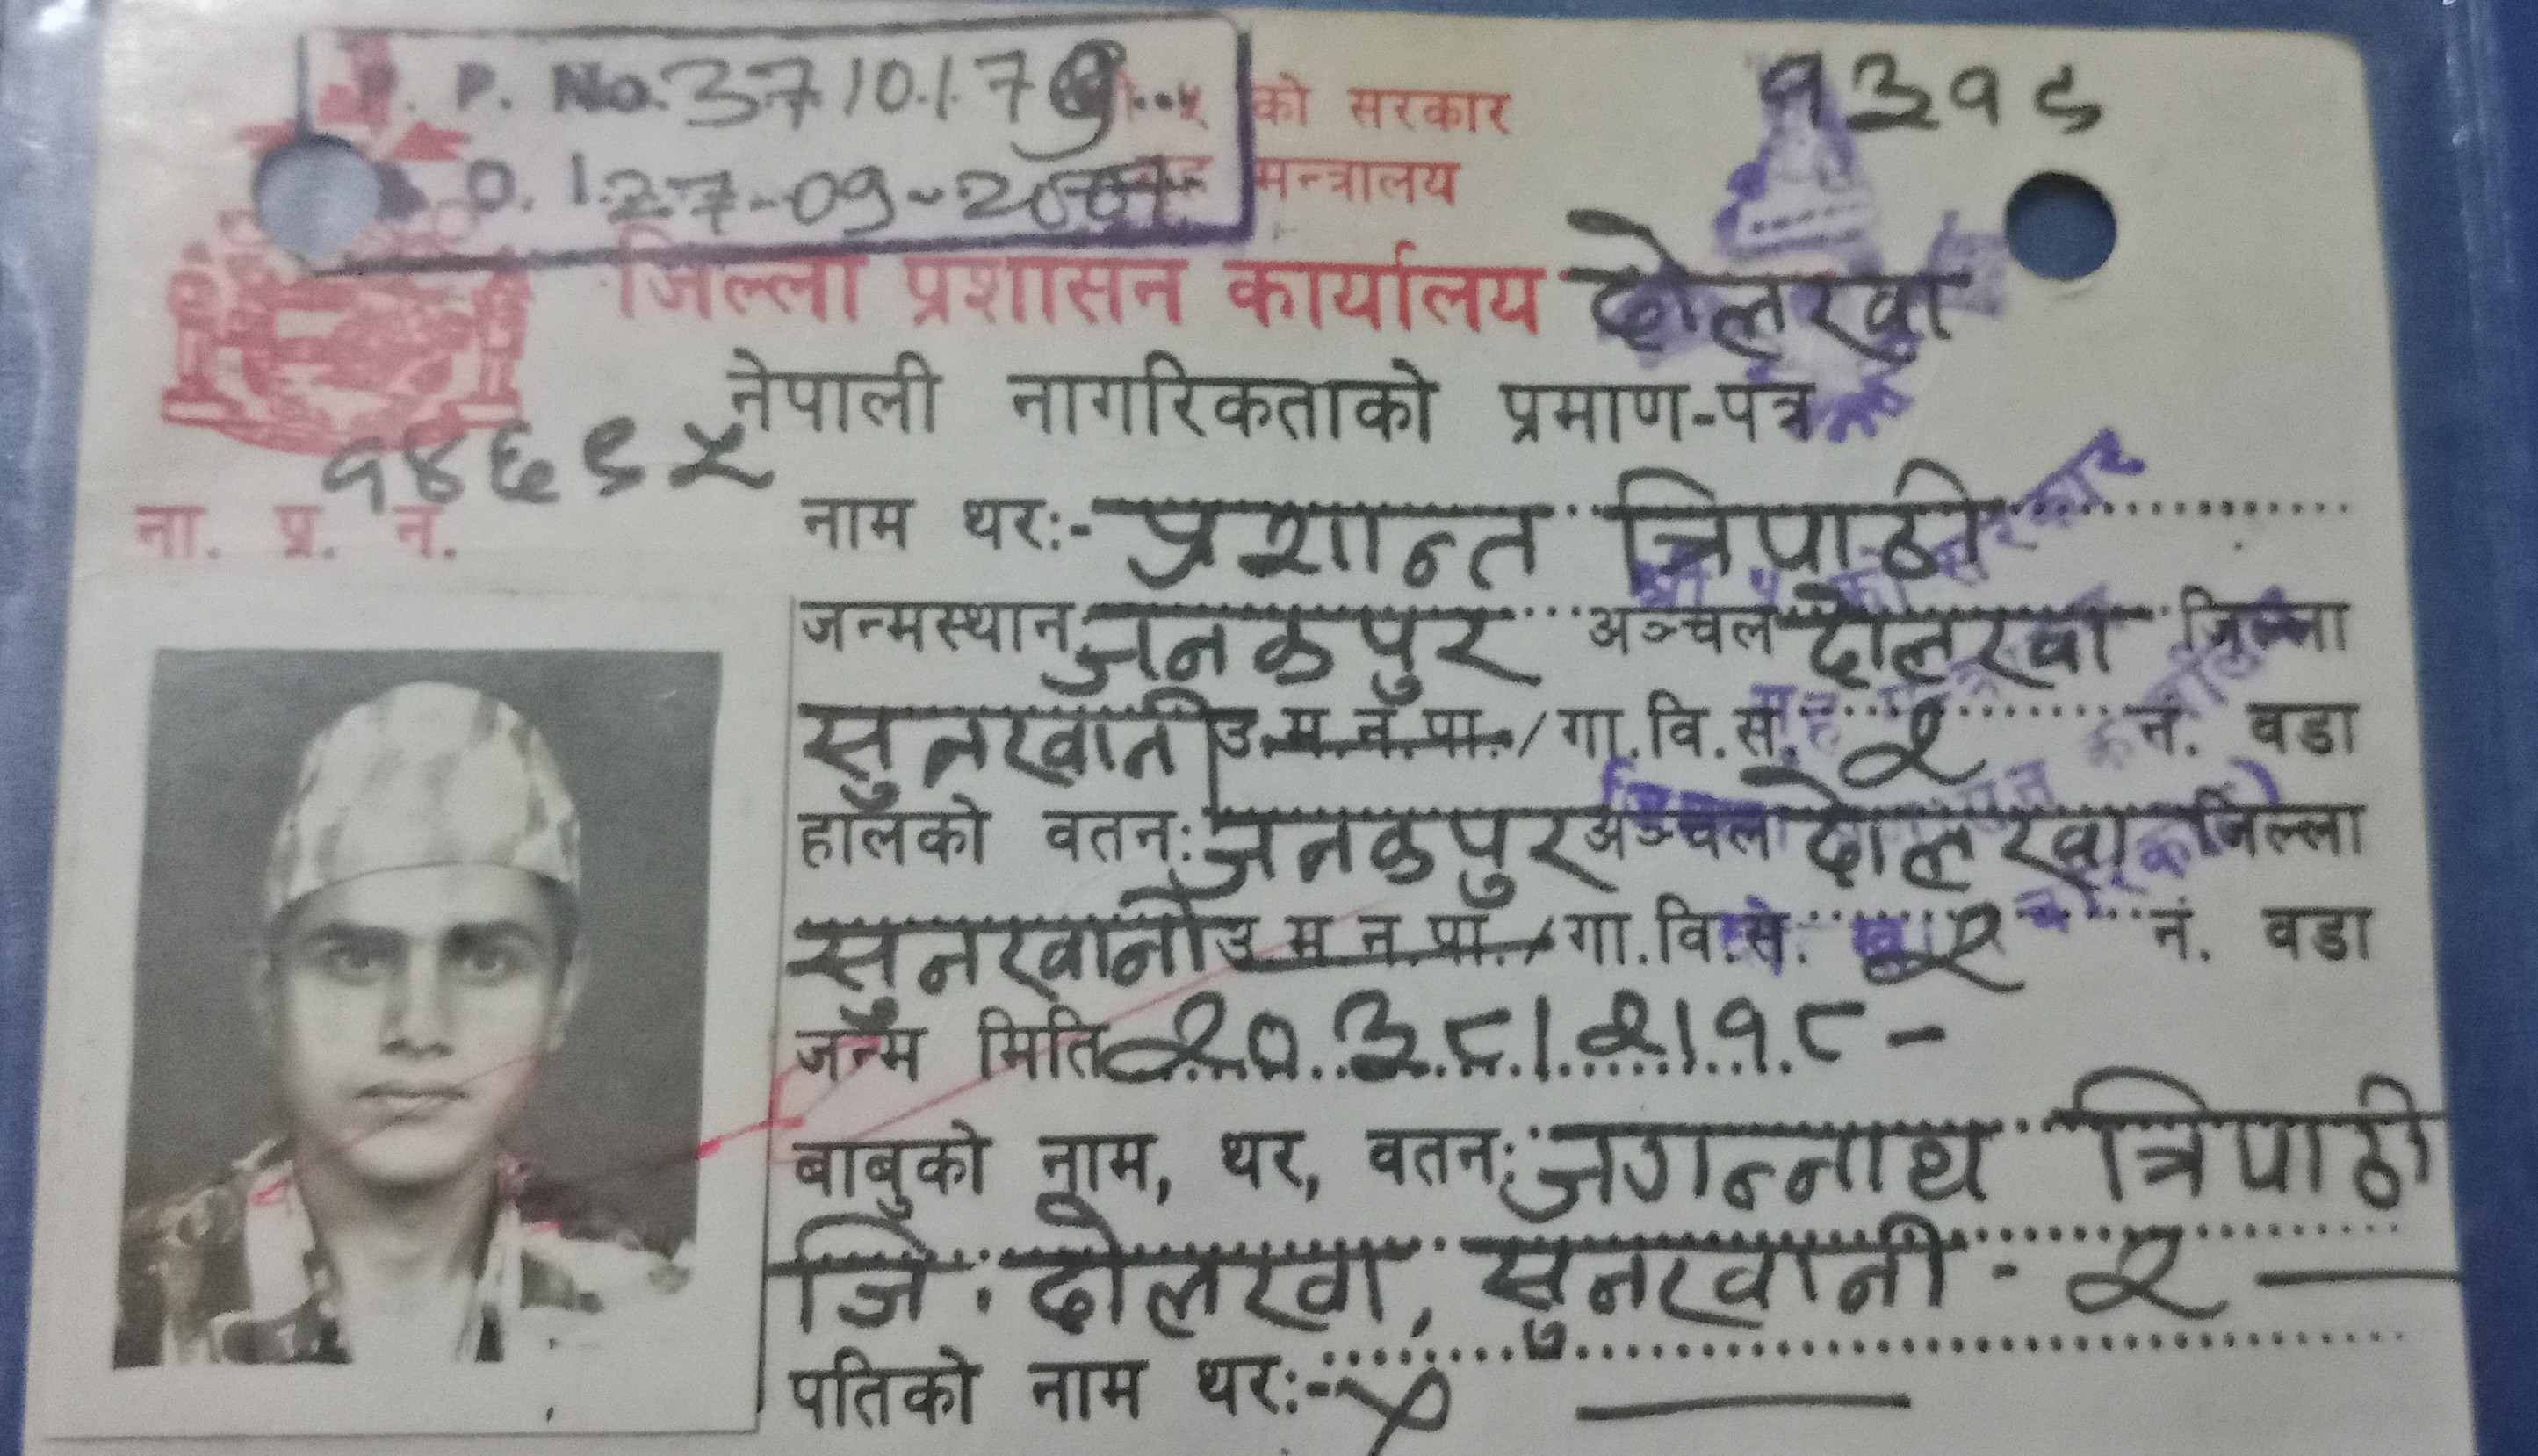 P. P. No. 3710179
D. I. 27-09-2007
१३१९
को सरकार
मन्त्रालय
जिल्ला प्रशासन कार्यालय दोलखा
नेपाली नागरिकताको प्रमाण-पत्र
१४६९५
ना. प्र. नं.
नाम थर:- प्रशान्त त्रिपाठी
जन्मस्थान जनकपुर अञ्चल दोलखा जिल्ला
सुनखानी उ.म.न.पा./गा.वि.स. २ नं. वडा
हालको वतन: जनकपुर अञ्चल दोलखा जिल्ला
सुनखानी उ.म.न.पा./गा.वि.स. २ नं. वडा
जन्म मिति २०३८।२।१८-
बाबुको नाम, थर, वतन: जगन्नाथ त्रिपाठी
जि. दोलखा, सुनखानी - २
पतिको नाम थर:-